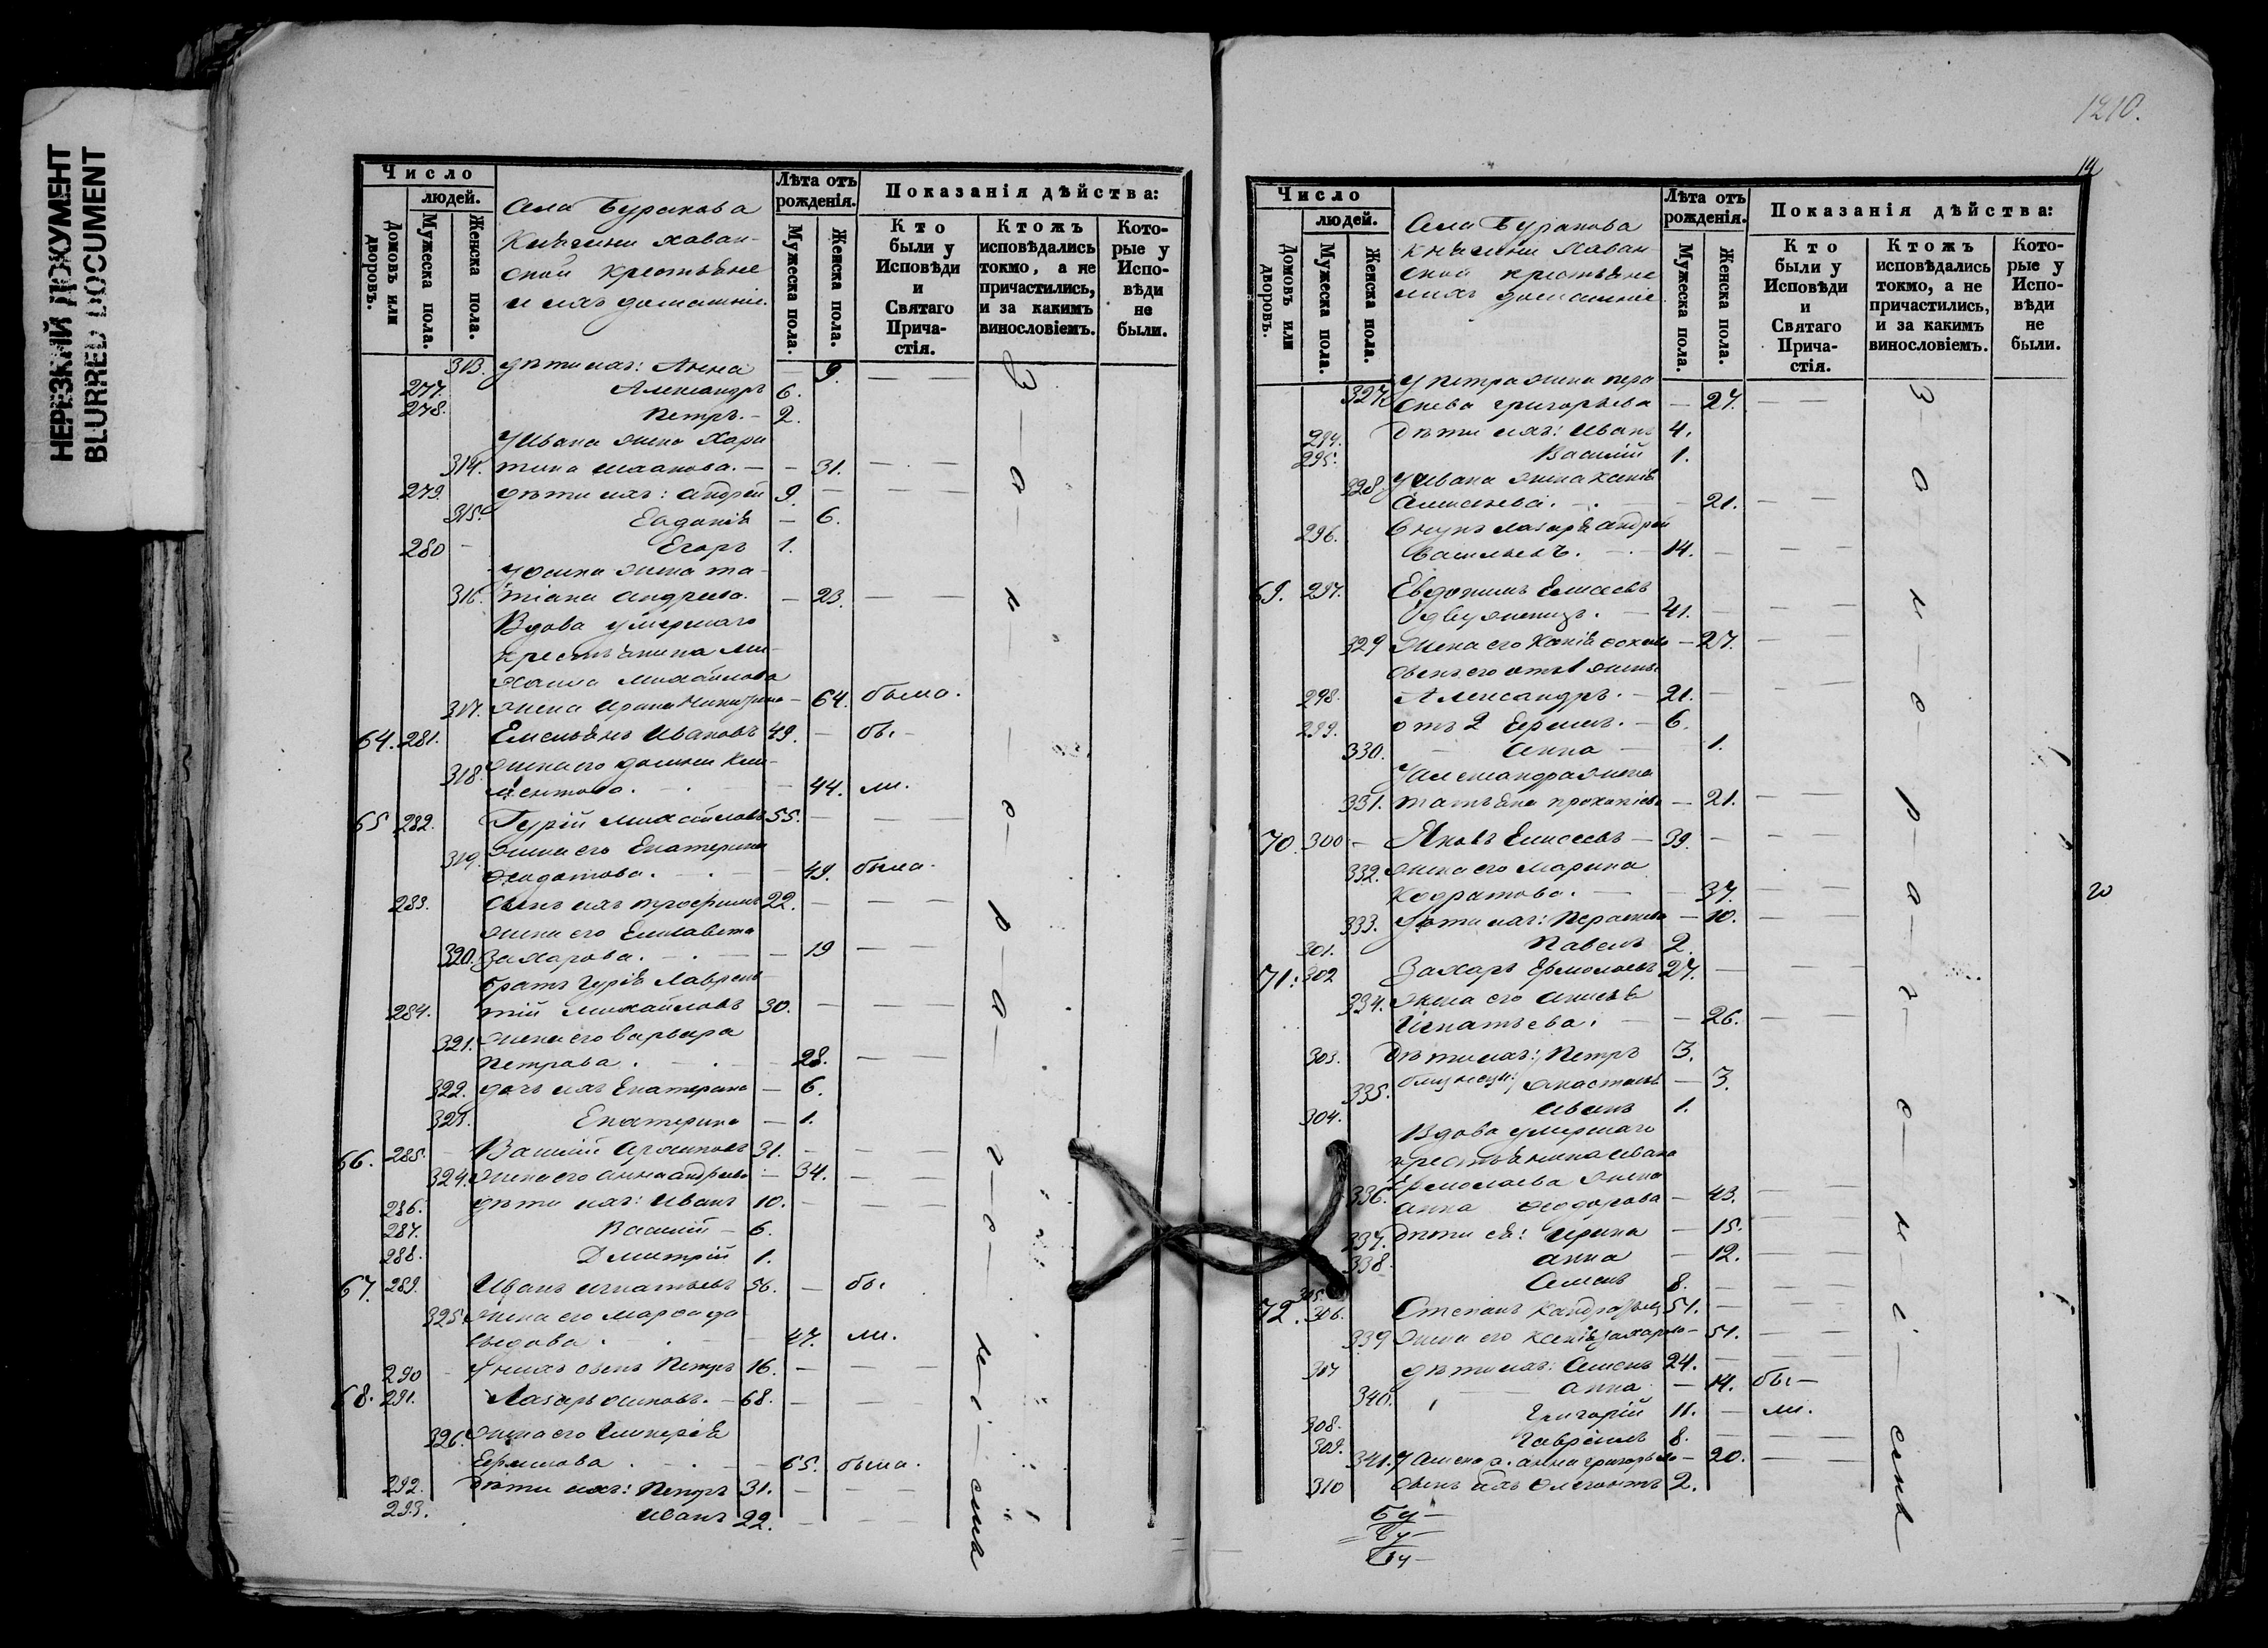 НЕРЕЗКИЙ ДОКУМЕНТ
BLURRED DOCUMENT
Число
людей.
Домовъ или дворовъ.
Мужеска пола.
Женска пола.
Села Буракова
Княгини Хован-
ской крестьяне
и ихъ домашніе.
Лѣта отъ рожденія.
Мужеска пола.
Женска пола.
Показанія дѣйства:
Кто были у Исповѣди и Святаго Причастія.
Ктожъ исповѣдались токмо, а не причастились, и за какимъ винословіемъ.
Которые у Исповѣди не были.
313. дѣти ихъ: Анна — 9.
277. Александръ 6.
278. Петръ. — 2.
У Ивана жена Хари
314. тина Исакова. — 31.
279. дѣти ихъ: Андрей 9.
315. Евдокія — 6.
280 Егоръ 1.
У Осипа жена Та-
316. тіана Андреева. — 23.
Вдова умершаго
крестьянина Ми-
хаила Михайлова
317. жена Ирина — 64. была.
64. 281. Емельянъ Ивановъ 49. — бы-
318. жена его Кли-
ментова. — 44. ли.
65 282. Гурій Михайловъ 55.
319. жена его Екатерина
Ѳедотова. — 49. была.
283. сынъ ихъ Трофимъ 22.
жена его Елисавета
320. Захарова. — 19
братъ Гурія Лаврен-
284. тій Михайловъ 30.
321. жена его Варвара
Петрова. — 28.
322. дочь ихъ Екатерина — 6.
323. Екатерина — 1.
66. 285. Василій Архиповъ 31.
324. жена его Анна Андреева — 34.
286. дѣти ихъ: Иванъ 10.
287. Василій — 6.
288. Дмитрій 1.
67. 289. Иванъ Игнатьевъ 56. — бы-
325. жена его Марфа Да
выдова. — 47. ли.
290 У нихъ сынъ Петръ 16.
68. 291. Лазарь Осиповъ. — 68.
326. жена его Гликерія
Ермилова — 65. была.
292. дѣти ихъ: Петръ 31.
293. Иванъ 22.
З—а—к—о—р—а—т—о—к—і—емъ
1210.
14
Число
людей.
Домовъ или дворовъ.
Мужеска пола.
Женска пола.
Села Буракова
Княгини Хован-
ской крестьяне
и ихъ домашніе
Лѣта отъ рожденія.
Мужеска пола.
Женска пола.
Показанія дѣйства:
Кто были у Исповѣди и Святаго Причастія.
Ктожъ исповѣдались токмо, а не причастились, и за какимъ винословіемъ.
Которые у Исповѣди не были.
У Петра жена Пера
327. скева Григорьева — 27.
294. Дѣти ихъ: Иванъ 4.
295. Василій 1.
328. У Ивана жена Ксенія
Алексѣева. — 21.
296. Внукъ Лазаря Андрей
Васильевъ. — 14.
69. 297. Евдокимъ Елисѣевъ
Двуженецъ. — 41.
329 жена его Ксенія — 27.
сынъ его отъ 1 жены
298. Александръ. — 21.
299. отъ 2 — 6.
330. Анна — 1.
У Александра жена
331. Татьяна Прокопіева — 21.
70. 300 — Яковъ Елисѣевъ — 39.
332. жена его Марина
Кодратова. — 37.
333. Дѣти ихъ: Пераскева — 10.
301. Павелъ 2.
71. 302 Захаръ Ермолаевъ 27.
334. жена его
Игнатьева. — 26.
303. Дѣти ихъ: Петръ 3.
335. близнецы: Анастасія — 3.
304. Иванъ 1.
Вдова умершаго
крестьянина Ивана
Ермолаева жена
336. Анна Ѳедорова — 43.
337. Дѣти ея: Ирина — 15.
338. Анна — 12.
305. Семенъ 8.
72. 306. Степанъ 51.
339 жена его Ксенія Захарова — 51.
307 дѣти ихъ: Семенъ 24.
340. Анна — 14. бы-
308. Григорій 11. — ли.
309. Гавріилъ 8.
341. У Семена ж. Анна Григорьева — 20.
310 сынъ ихъ 2.
З—а—к—о—р—а—т—о—к—і—емъ
20
Бу-
Бу-
Бу-